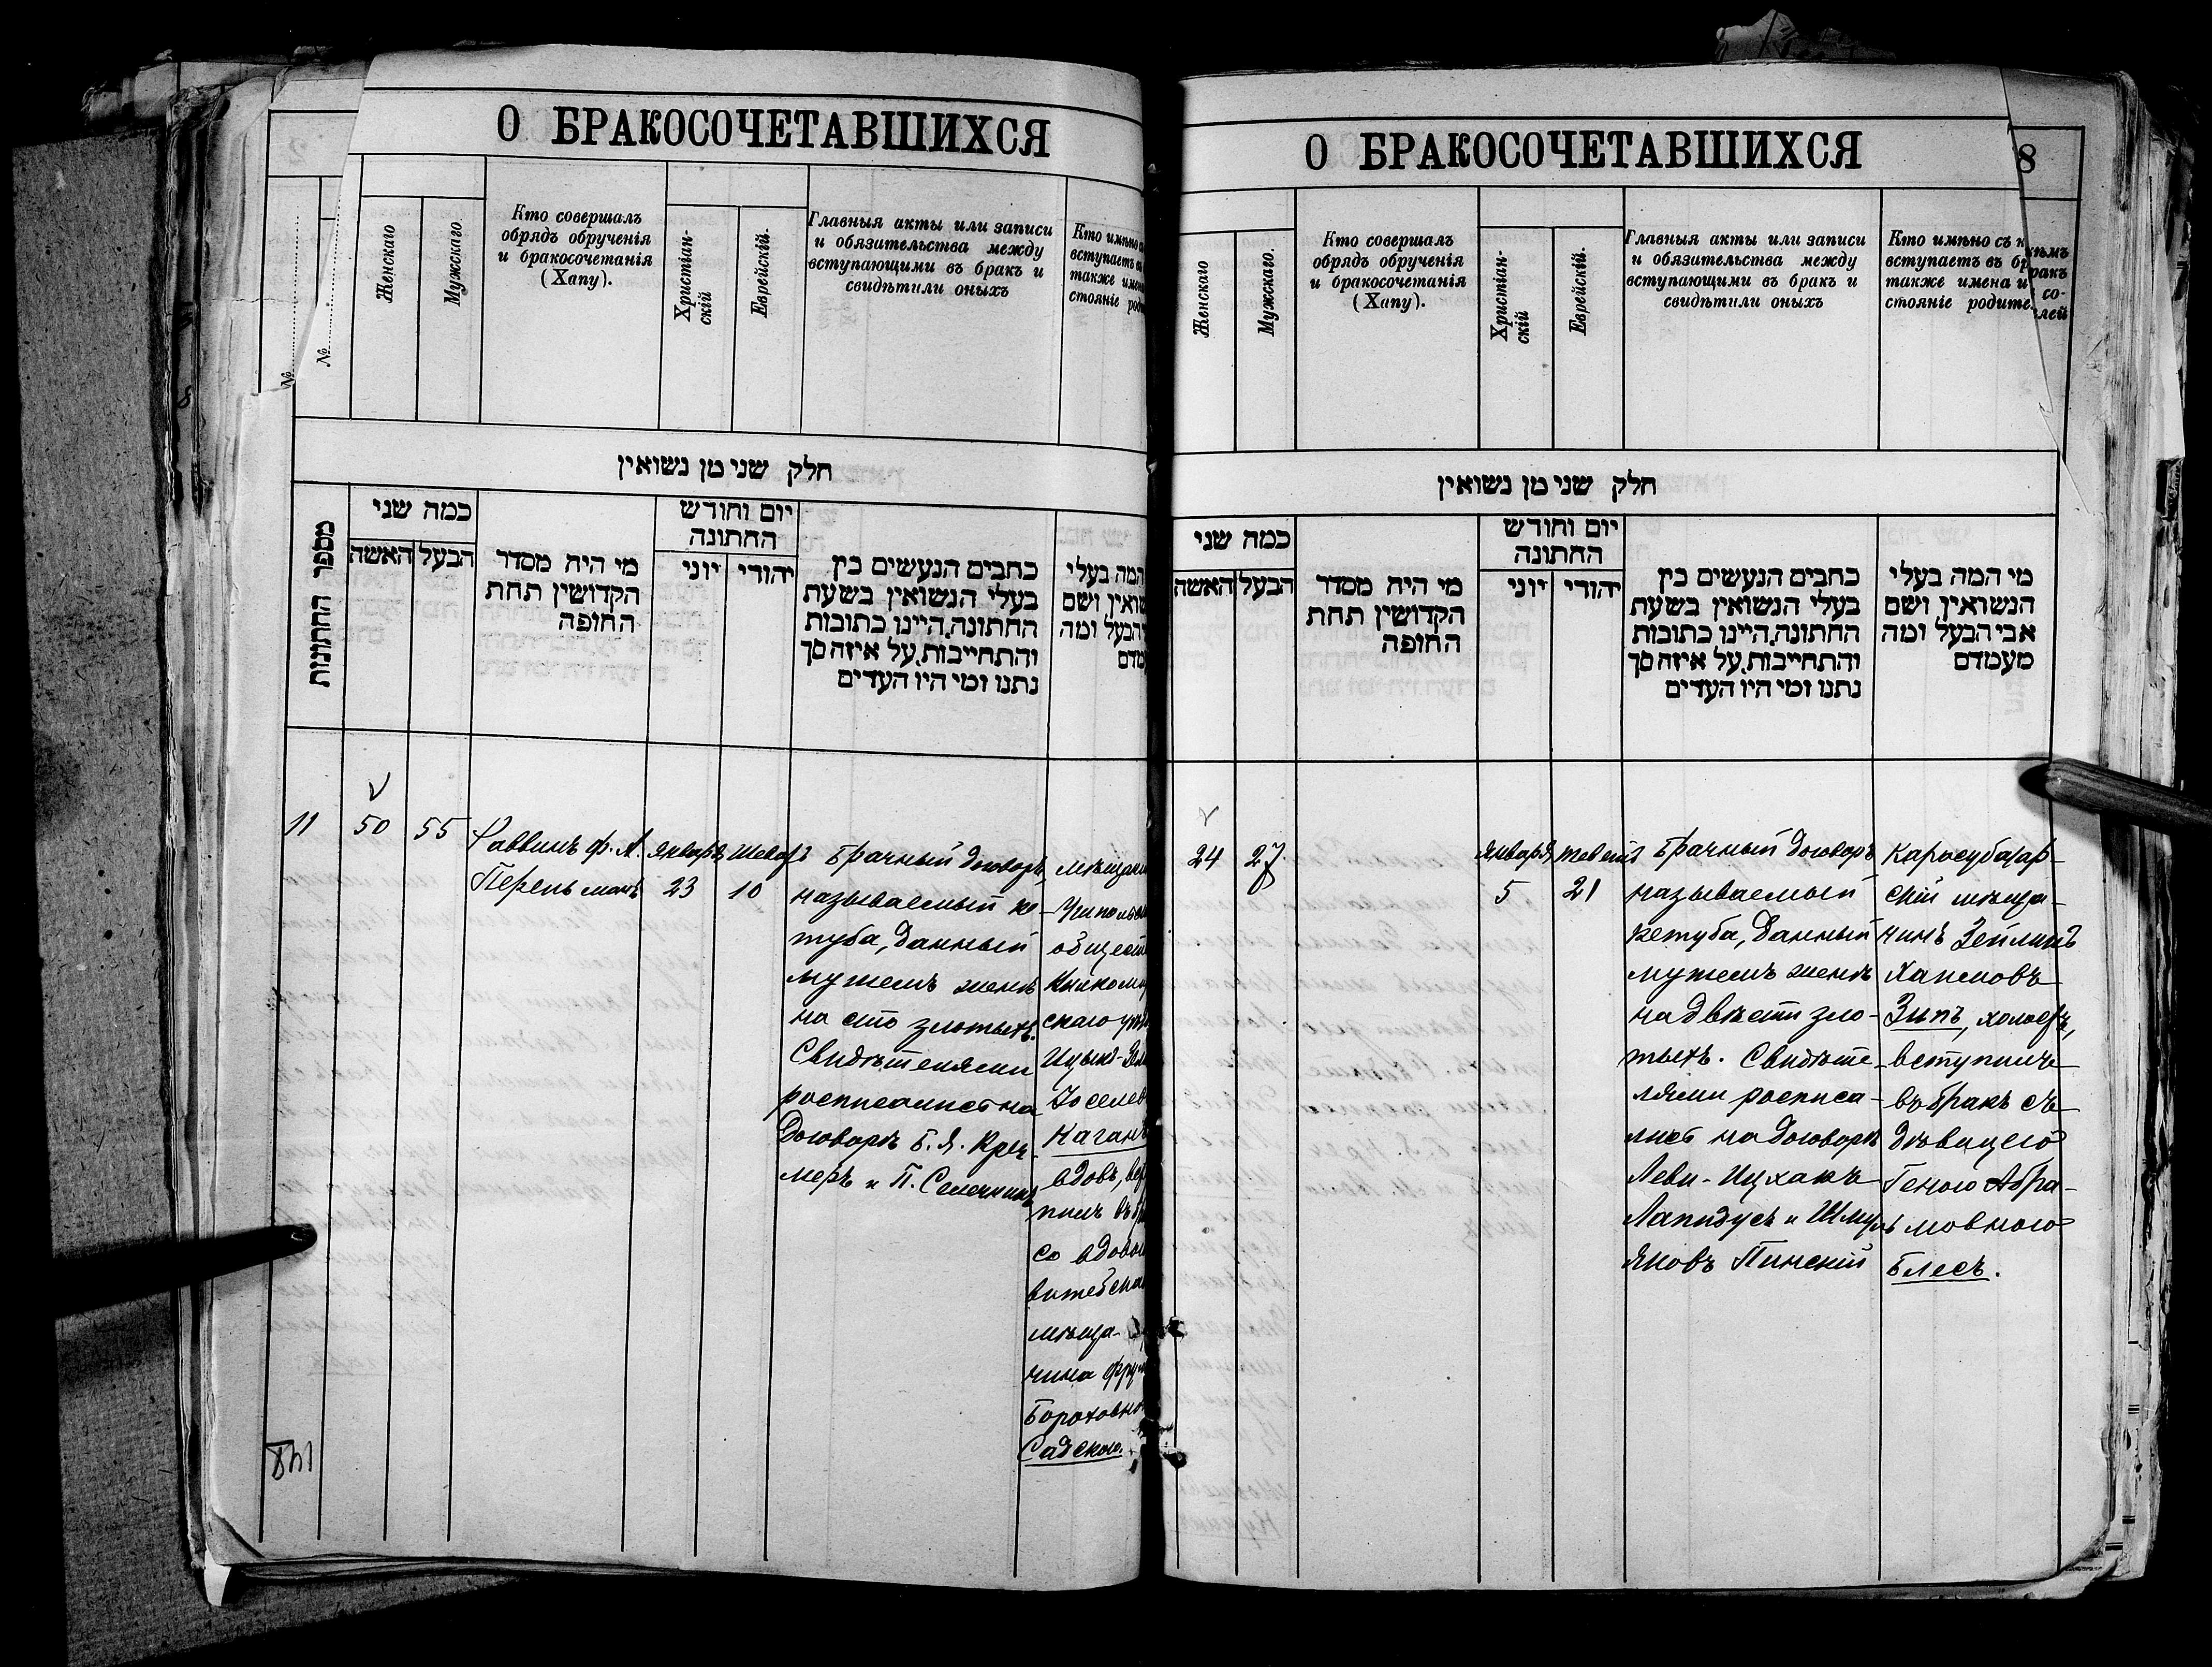 О БРАКОСОЧЕТАВШИХСЯ
№
№
Женскаго
Мужскаго
Кто совершалъ
обрядъ обрученія
и бракосочетанія
(Хапу).
Христіан-
скій
Еврейскій.
Главныя акты или записи
и обязательства между
вступающими въ бракъ и
свидѣтили оныхъ
Кто имѣно
вступаетъ
также имен
стояніе роди
חלק שני מן נשואין
מספר החתונות
כמה שני
האשה
הבעל
מי היה מסדר
הקדושין תחת
החופה
יום וחודש
החתונה
יוני
יהודי
כתבים הנעשים בין
בעלי הנשואין בשעת
החתונה, היינו כתובות
והתחייבות, על איזה סך
נתנו ומי היו העדים
המה בעלי
שואין, ושם
הבעל ומה
עמדם
11
50
55
Раввинъ Ф. А.
Перельманъ
Январь
23
Шеватъ
10
Брачный договоръ,
называемый ке-
туба, данный
мужемъ женѣ
на сто злотыхъ.
Свидѣтелями
росписались на
договорѣ Б. Я. Кре-
меръ и П. Селечникъ
мѣщани
общест
скаго
Іоселев
Каганъ
вдовъ,
пилъ въ
со вдово
витебска
мѣща-
нина
Бороховно
Садскою.
148
О БРАКОСОЧЕТАВШИХСЯ
8
Женскаго
Мужскаго.
Кто совершалъ
обрядъ обрученія
и бракосочетанія
(Хапу).
Христіан-
скій
Еврейскій.
Главныя акты или записи
и обязательства между
вступающими въ бракъ и
свидѣтили оныхъ
Кто имѣно съ кѣмъ
вступаетъ въ бракъ
также имена и со-
стояніе родителей
חלק שני מן נשואין
כמה שני
האשה
הבעל
מי היה מסדר
הקדושין תחת
החופה
יום וחודש
החתונה
יוני
יהודי
כתבים הנעשים בין
בעלי הנשואין בשעת
החתונה, היינו כתובות
והתחייבות, על איזה סך
נתנו ומי היו העדים
מי המה בעלי
הנשואין, ושם
אבי הבעל ומה
מעמדם
24
27
Января
5
Тевейтъ
21
Брачный договоръ
называемый
кетуба, данный
мужемъ женѣ
на двѣсти зло-
тыхъ. Свидѣте-
лями росписа-
лись на договорѣ
Леви-Ицхакъ
Лапидусъ и Шмуль
Яковъ Пинскій
Карасубазар-
скій мѣща-
нинъ Зейликъ
Хаимовъ
Зипъ, холостъ,
вступилъ
въ бракъ съ
дѣвицею
Генею Абра-
мовною
Блесъ.